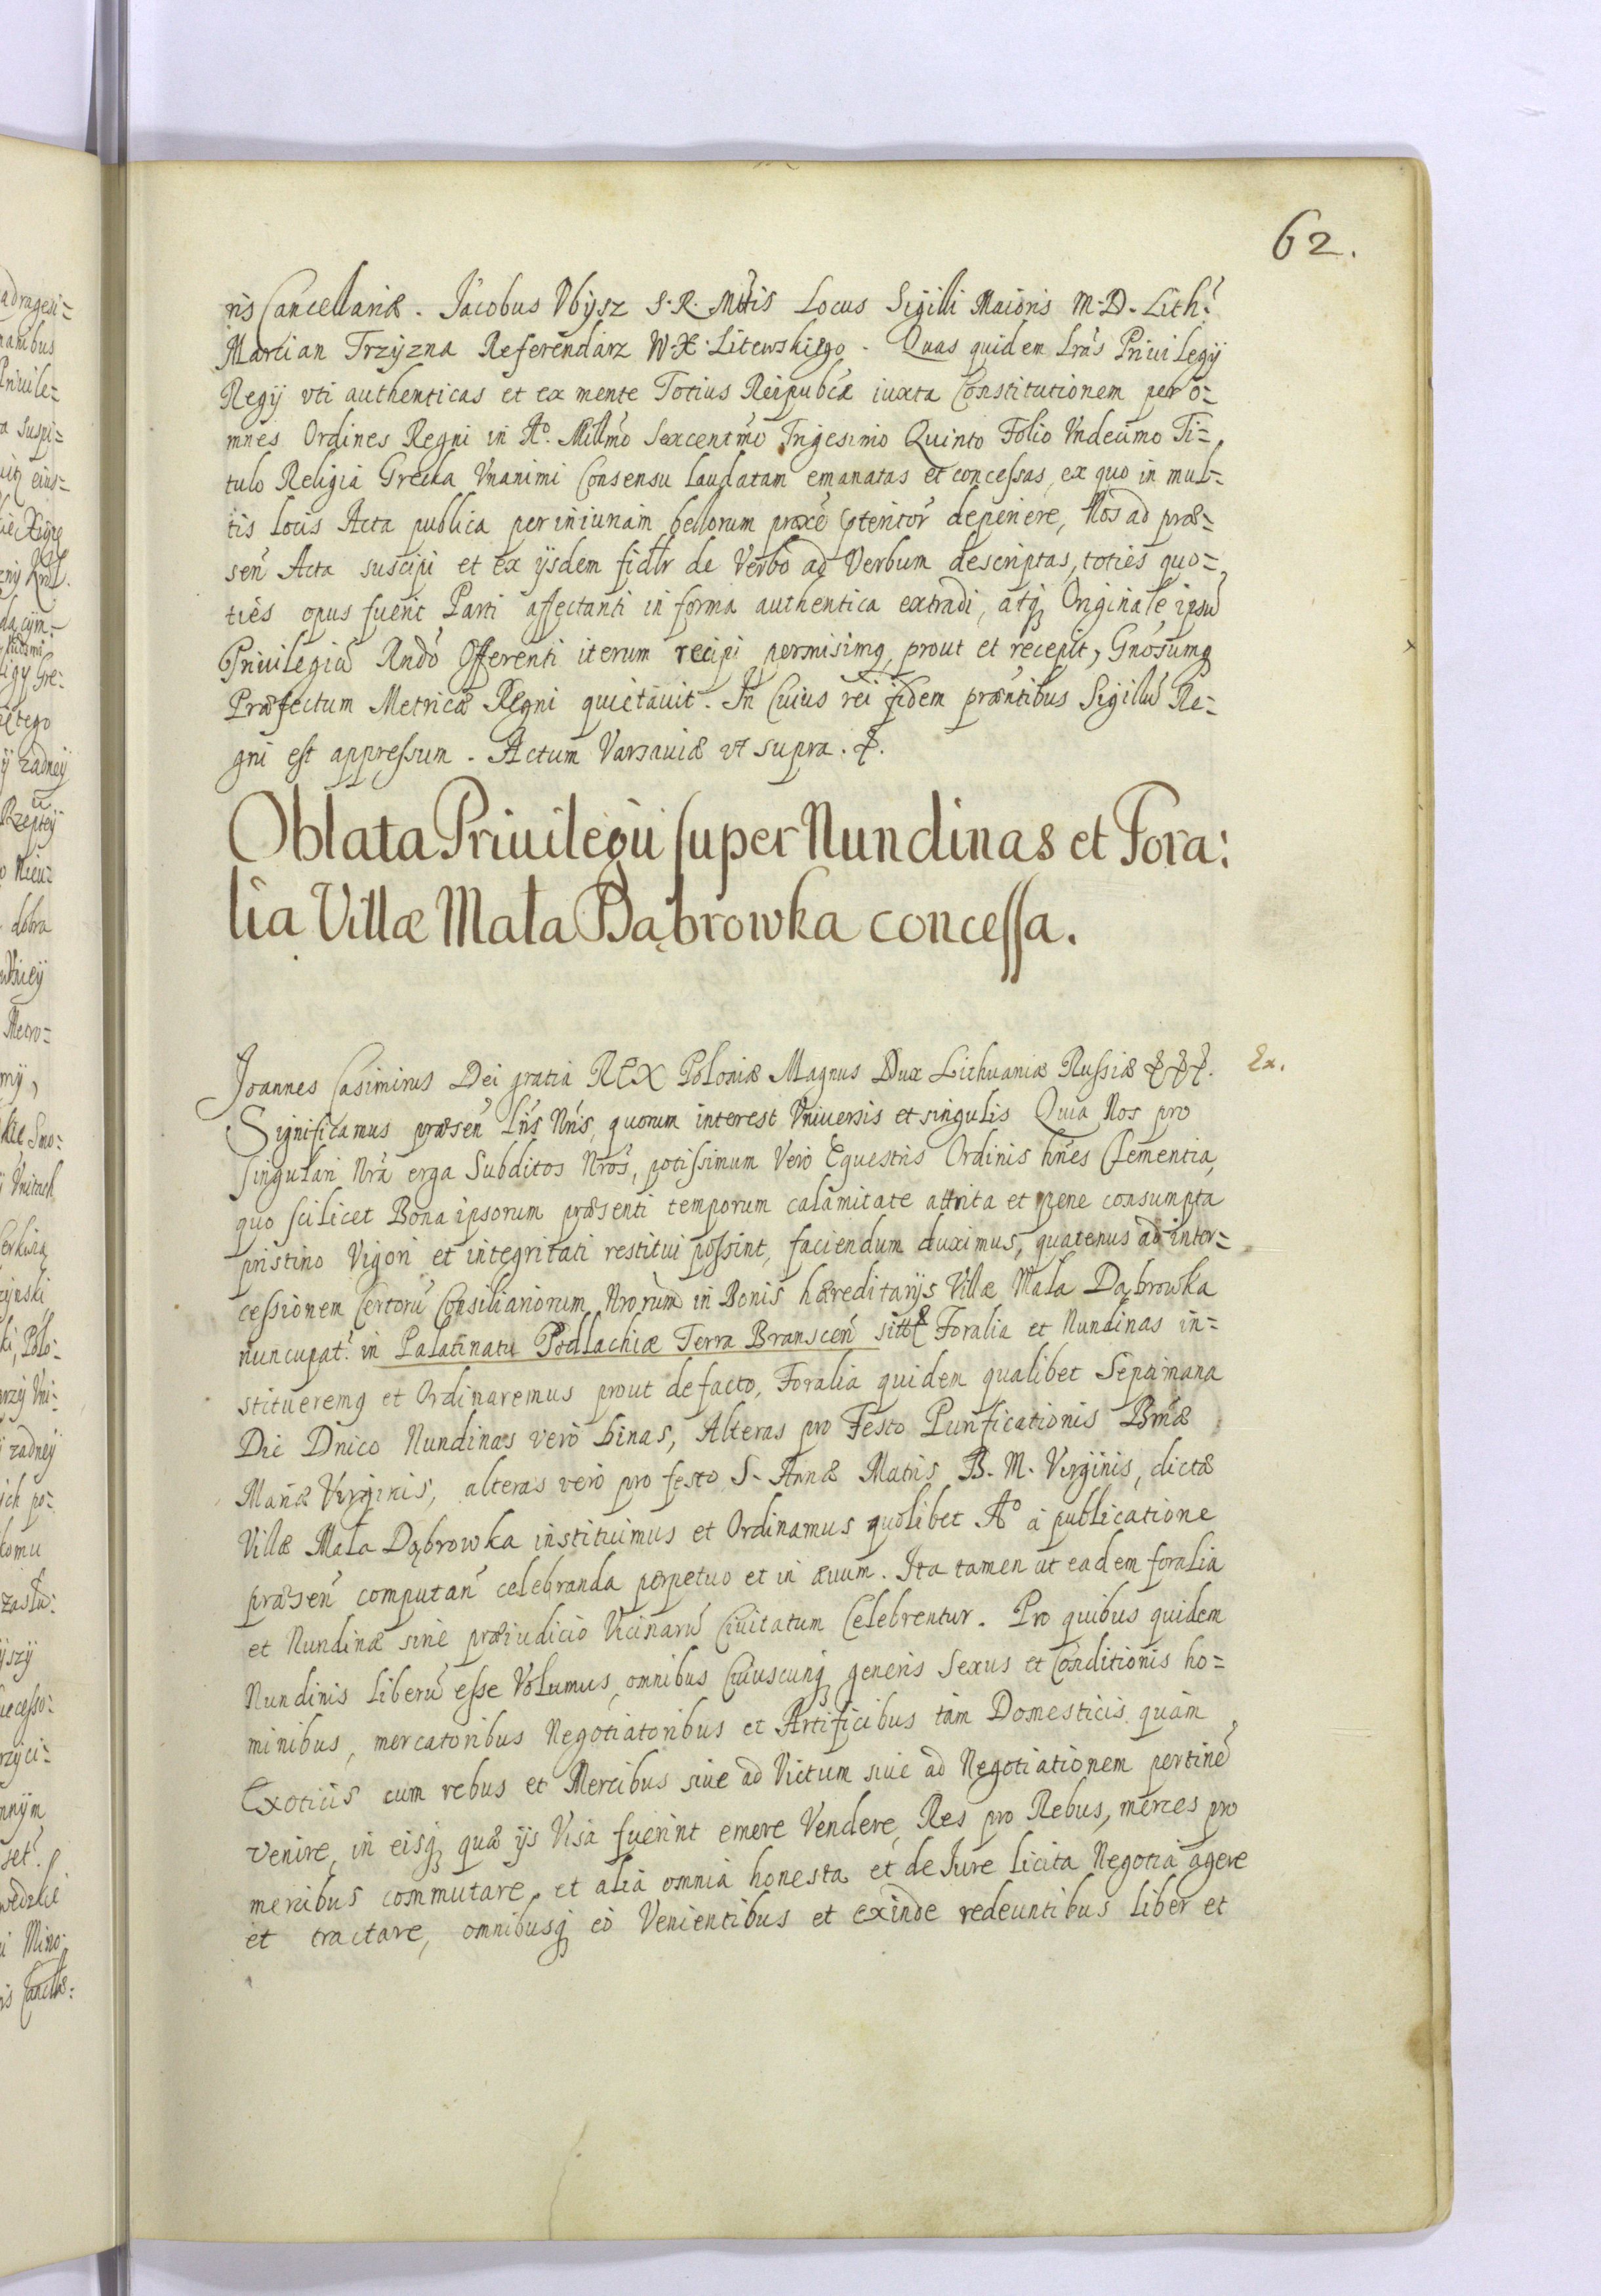 62.
ris Cancellariæ. Jacobus Vbysz S. R. Mttis Locus Sigilli Maioris M. D. Lith:
Marcian Tryzna Referendarz W. X. Litewskiego. Quas quidem Lrãs Priuilegij
Regij vti authenticas et ex mente Totius Reipubcæ iuxta Constitutionem per o=
mnes Ordines Regni in Aº. Millmo Sexcentmo Trigesimo Quinto Folio Vndecimo Ti=
tulo Religia Grecka Vnanimi Consensu laudatam emanatas et concessas, ex quo in mul=
tis locis Acta publica per iniuriam bellorum proxe pteritor deperiere, Nos ad præ=
sen Acta suscipi et ex ijsdem fidlr de Verbo ad Verbum descriptas, toties quo=
ties opus fuerit Parti affectanti in forma authentica extradi, atq Originale ipsũ
Priuilegiũ Rndo Offerenti iterum recipi permisimq, prout et recepit, Gnosumq
Præfectum Metricæ Regni quietauit. In Cuius rei fidem præntibus Sigilũ Re=
gni est appressum. Actum Varsauiæ vt supra.
Oblata Priuilegii super Nundinas et Fora:
lia Villæ Mała Dąbrowka concessa.
Joannes Casimirus Dei gratia REX Poloniæ Magnus Dux Lithuaniæ Russiæ
Ex.
Significamus præsen Lris Nris, quorum interest Vniuersis et singulis Quia Nos pro
singulari Nra erga Subditos Nros, potissimum Vero Equestris Ordinis hnes Clementia,
quo scilicet Bona ipsorum præsenti temporum calamitate attrita et pene consumpta
pristino Vigori et integritati restitui possint, faciendum duximus, quatenus ad inter=
cessionem Certorũ Consiliariorum Nrorum in Bonis hæreditarijs Villæ Mała Dąbrowka
nuncupat: in Palatinatu Podlachiæ Terra Branscen sittæ Foralia et Nundinas in=
stitueremq et Ordinaremus prout de facto, Foralia quidem qualibet Septimana
Die Dnico Nundinas vero binas, Alteras pro Festo Purificationis Bmæ
Mariæ Virginis, alteras vero pro festo S. Annæ Matris B. M. Virginis, dictæ
Villæ Mała Dąbrowka instituimus et Ordinamus quolibet Aº a publicatione
præsen computan celebranda perpetuo et in æuum. Ita tamen ut eadem foralia
et Nundinæ sine præiudicio Vicinarũ Ciuitatum Celebrentur. Pro quibus quidem
Nundinis Liberũ esse Volumus, omnibus Cuiuscunq generis Sexus et Conditionis ho=
minibus, mercatoribus Negotiatoribus et Artificibus tam Domesticis quam
Exoticis cum rebus et Mercibus siue ad Victum siue ad Negotiationem pertinẽ
venire, in eisq quæ ijs Visa fuerint emere Vendere, Res pro Rebus, merces pro
mercibus commutare, et alia omnia honesta et de Jure licita Negotia agere
et tractare, omnibusq eo Venientibus et exinde redeuntibus Liber et